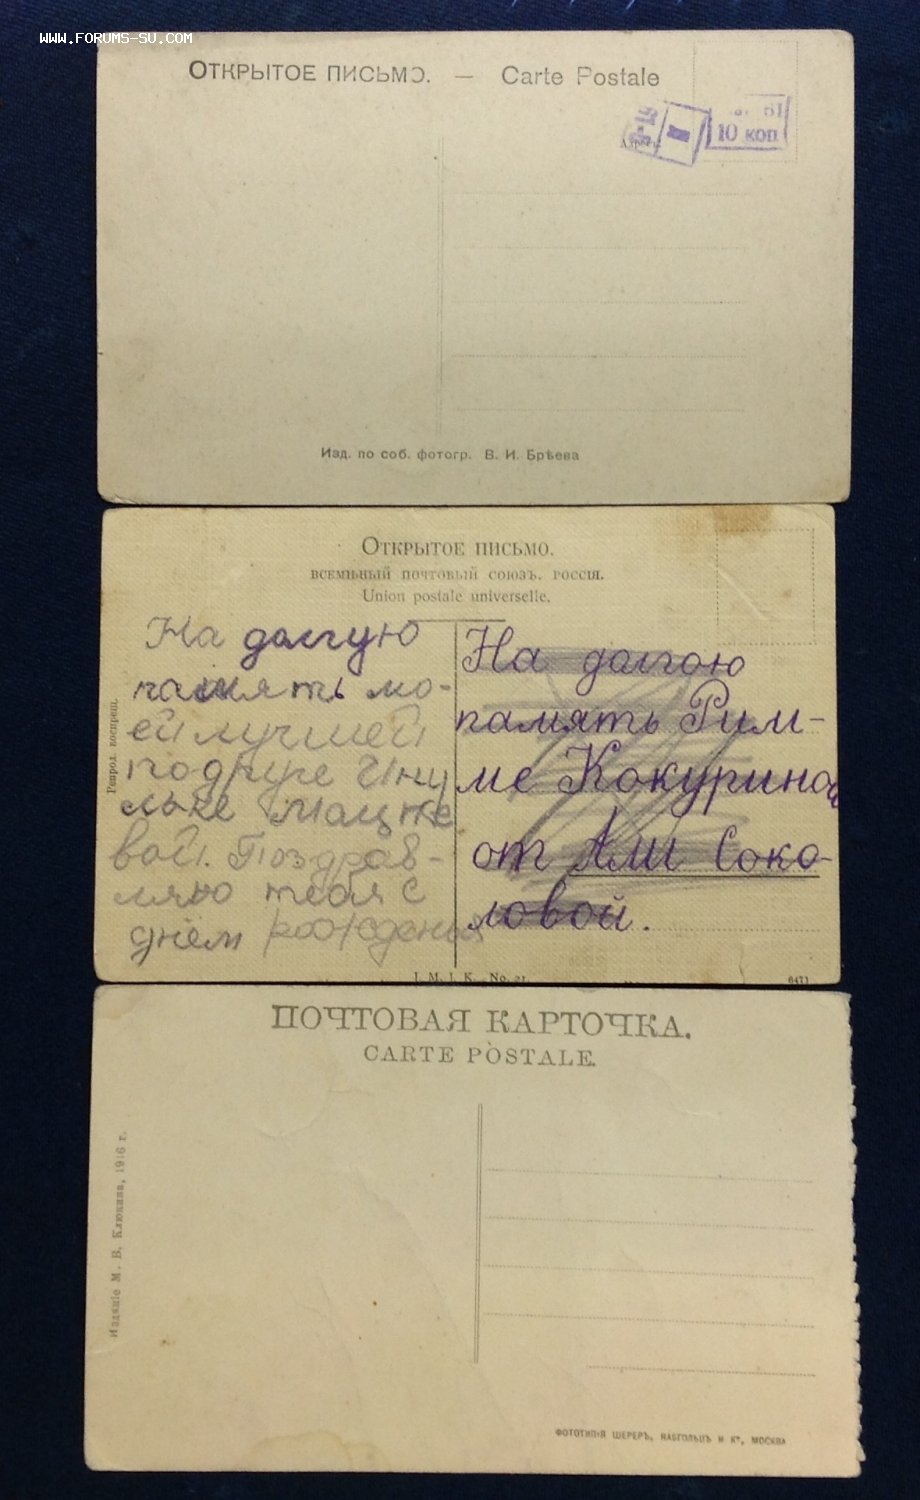 WWW.FORUMS-SU.COM
ОТКРЫТОЕ ПИСЬМО. — Carte Postale
10 коп
Адресъ
Изд. по соб. фотогр. В. И. Брѣева
ОТКРЫТОЕ ПИСЬМО.
ВСЕМІРНЫЙ ПОЧТОВЫЙ СОЮЗЪ. РОССІЯ.
Union postale universelle.
На долгую
память мо-
ей лучшей
подруге
Поздрав-
ляю тебя с
днём рождения
На долгою
память Рим-
ме Кокуриной
от Али Соко-
ловой.
воспрещ.
I. M. I. K. No. 21
6471
ПОЧТОВАЯ КАРТОЧКА.
CARTE POSTALE.
Изданіе М. В. Клюкина, 1916 г.
ФОТОТИПІЯ ШЕРЕРЪ, НАБГОЛЬЦЪ И Кº, МОСКВА